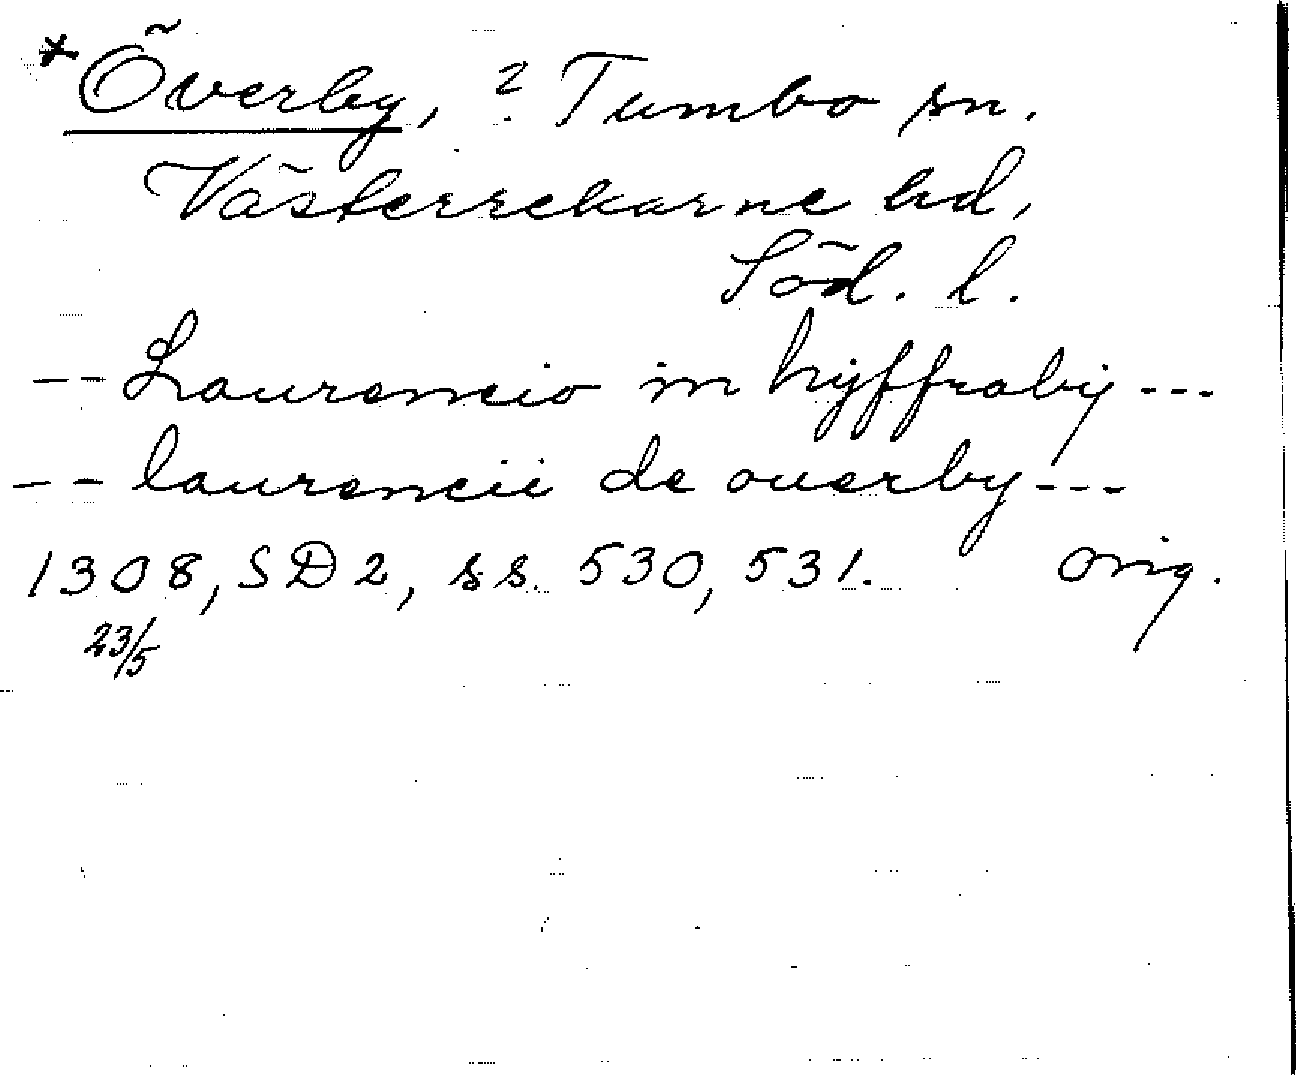 *Överby, ? Tumbo sn.
Västerrekarne hd,
Söd. l.
-- Laurencio in hyffraby ---
-- laurencii de ouerby ---
1308, SD2, ss. 530, 531. orig.
23/5